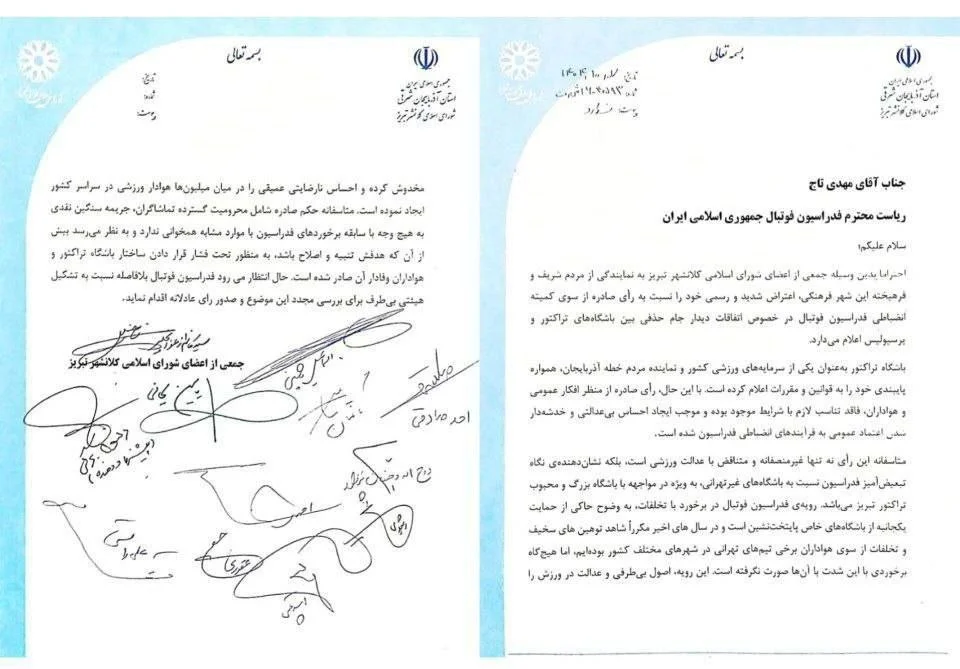 بسمه تعالی
جمهوری اسلامی ایران
استان آذربایجان شرقی
شورای اسلامی کلانشهر تبریز
تاریخ:
شماره:
پیوست:
جناب آقای مهدی تاج
ریاست محترم فدراسیون فوتبال جمهوری اسلامی ایران
سلام علیکم؛
احتراما بدین وسیله جمعی از اعضای شورای اسلامی کلانشهر تبریز به نمایندگی از مردم شریف و
فرهیخته این شهر فرهنگی، اعتراض شدید و رسمی خود را نسبت به رأی صادره از سوی کمیته
انضباطی فدراسیون فوتبال در خصوص اتفاقات دیدار جام حذفی بین باشگاه‌های تراکتور و
پرسپولیس اعلام می‌دارد.
باشگاه تراکتور به‌عنوان یکی از سرمایه‌های ورزشی کشور و نماینده مردم خطه آذربایجان، همواره
پایبندی خود را به قوانین و مقررات اعلام کرده است. با این حال، رأی صادره از منظر افکار عمومی
و هواداران، فاقد تناسب لازم با شرایط موجود بوده و موجب ایجاد احساس بی‌عدالتی و خدشه‌دار
شدن اعتماد عمومی به فرآیندهای انضباطی فدراسیون شده است.
متاسفانه این رأی نه تنها غیرمنصفانه و متناقض با عدالت ورزشی است، بلکه نشان‌دهنده‌ی نگاه
تبعیض‌آمیز فدراسیون نسبت به باشگاه‌های غیرتهرانی، به ویژه در مواجهه با باشگاه بزرگ و محبوب
تراکتور تبریز می‌باشد. رویه‌ی فدراسیون فوتبال در برخورد با تخلفات، به وضوح حاکی از حمایت
یکجانبه از باشگاه‌های خاص پایتخت‌نشین است و در سال های اخیر مکرراً شاهد توهین های سخیف
و تخلفات از سوی هواداران برخی تیم‌های تهرانی در شهرهای مختلف کشور بوده‌ایم، اما هیچ‌گاه
برخوردی با این شدت با آن‌ها صورت نگرفته است. این رویه، اصول بی‌طرفی و عدالت در ورزش را
بسمه تعالی
جمهوری اسلامی ایران
استان آذربایجان شرقی
شورای اسلامی کلانشهر تبریز
تاریخ:
شماره:
پیوست:
مخدوش کرده و احساس نارضایتی عمیقی را در میان میلیون‌ها هوادار ورزشی در سراسر کشور
ایجاد نموده است. متاسفانه حکم صادره شامل محرومیت گسترده تماشاگران، جریمه سنگین نقدی
به هیچ وجه با سابقه برخوردهای فدراسیون با موارد مشابه همخوانی ندارد و به نظر می‌رسد بیش
از آن که هدفش تنبیه و اصلاح باشد، به منظور تحت فشار قرار دادن ساختار باشگاه تراکتور و
هواداران وفادار آن صادر شده است. حال انتظار می رود فدراسیون فوتبال بلافاصله نسبت به تشکیل
هیئتی بی‌طرف برای بررسی مجدد این موضوع و صدور رای عادلانه اقدام نماید.
جمعی از اعضای شورای اسلامی کلانشهر تبریز
احد صادقی